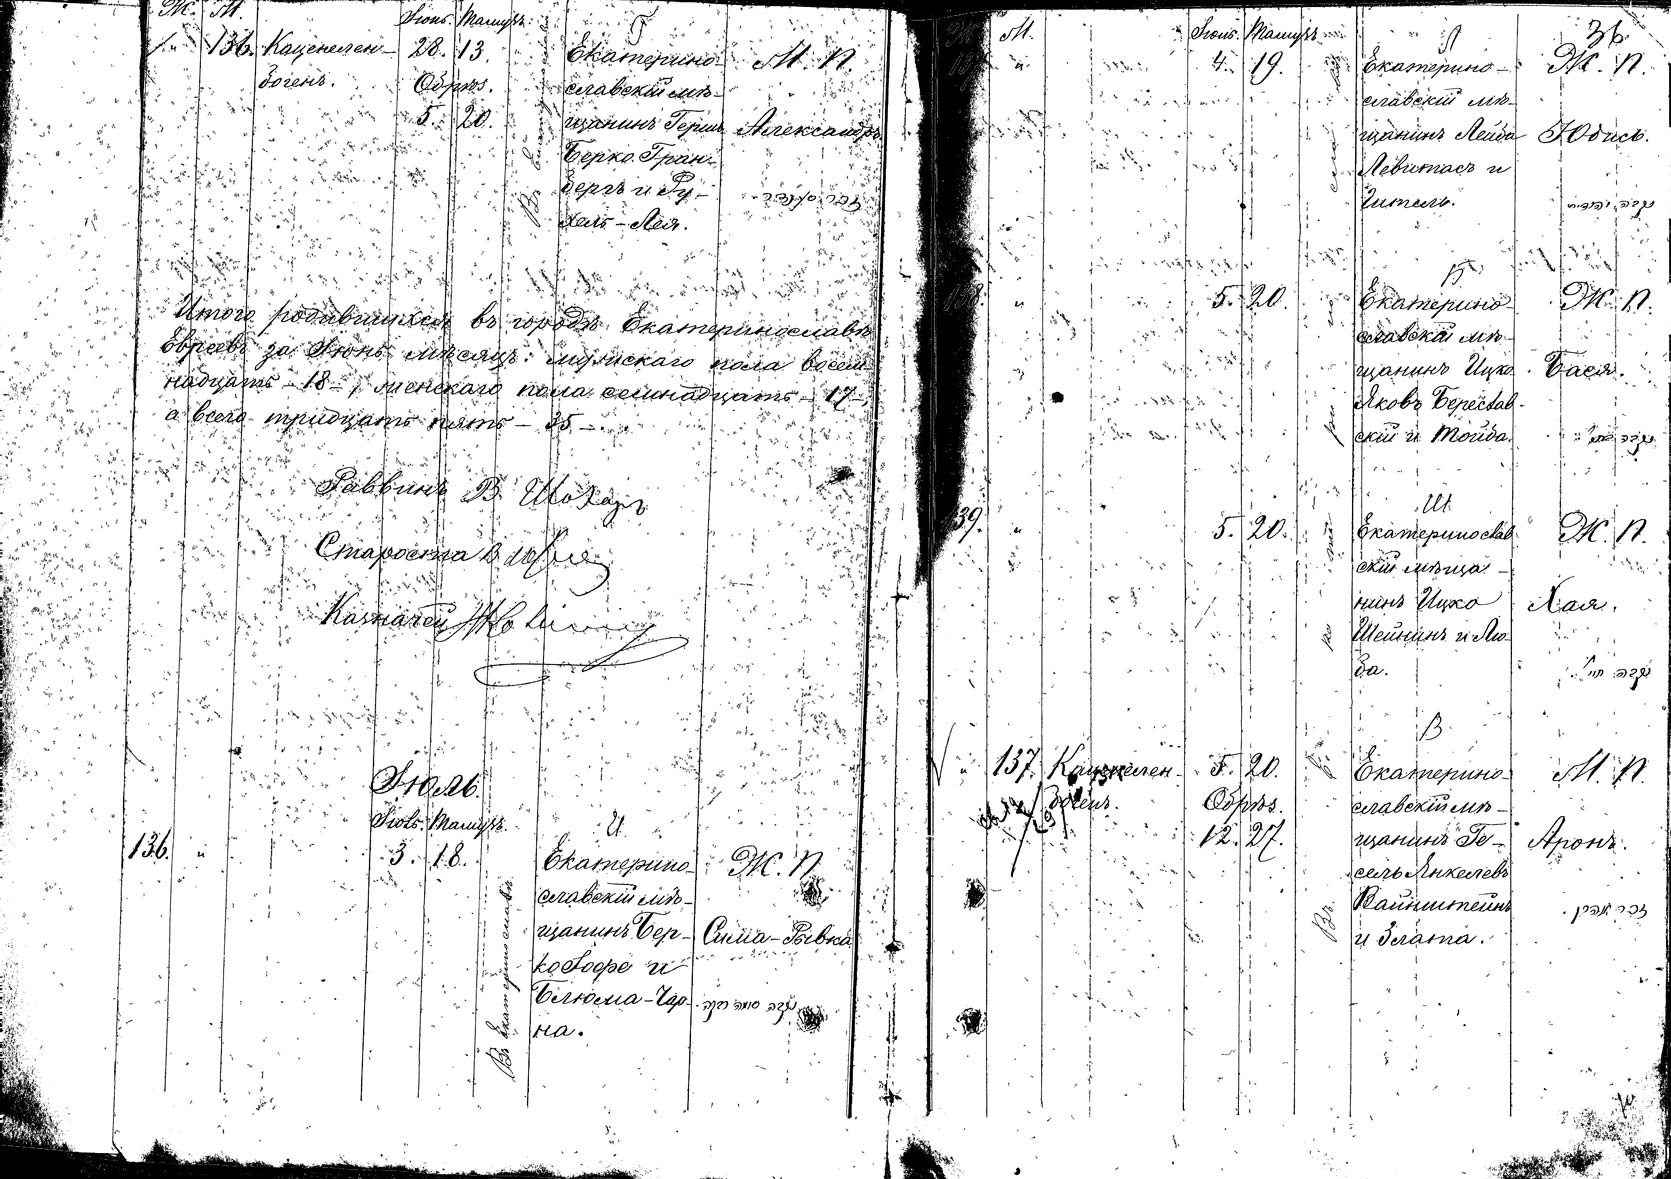 Ж. М. Іюнь. Тамузъ
136. Каценелен-
богенъ.
28. 13.
Обрѣз.
5. 20.
Г
Екатерино-
славскій мѣ-
щанинъ Герш
Берко Гран-
бергъ и Ру-
хель-Лея.
М. П.
Александръ
Итого родившихся въ городѣ Екатеринославѣ
Евреевъ за Іюнь мѣсяцъ: мужскаго пола восем-
надцать - 18 -, женскаго пола семнадцать - 17 -,
а всего тридцать пять - 35 -
Раввинъ В. Шохоръ
Староста
Казначей
Іюль.
Іюль. Тамузъ.
136. "
3. 18.
Въ Екатеринославѣ
И
Екатерино-
славскій мѣ-
щанинъ Бер-
ко Іофе и
Блюма-Чар-
на.
Ж. П.
Сима-Рывка
נקבה
36
М. Іюль. Тамузъ
"
4. 19.
Л
Екатерино-
славскій мѣ-
щанинъ Лейба
Левитасъ и
Гитель.
Ж. П.
Юдись.
נקבה יהודית
138. "
5. 20.
Б
Екатерино-
славскій мѣ-
щанинъ Ицко
Яковъ Береслав-
скій и Тойба.
Ж. П.
Бася.
נקבה
139. "
5. 20.
Ш
Екатеринослав-
скій мѣща-
нинъ Ицко
Шейнинъ и Лю-
ба.
Ж. П.
Хая.
נקבה חי'
" 137. Каценелен-
богенъ.
5. 20.
Обрѣз.
12. 27.
Въ
В
Екатерино-
славскій мѣ-
щанинъ Ге-
сель Янкелевъ
Вайнштейнъ
и Злата.
М. П.
Аронъ.
זכר אהרן